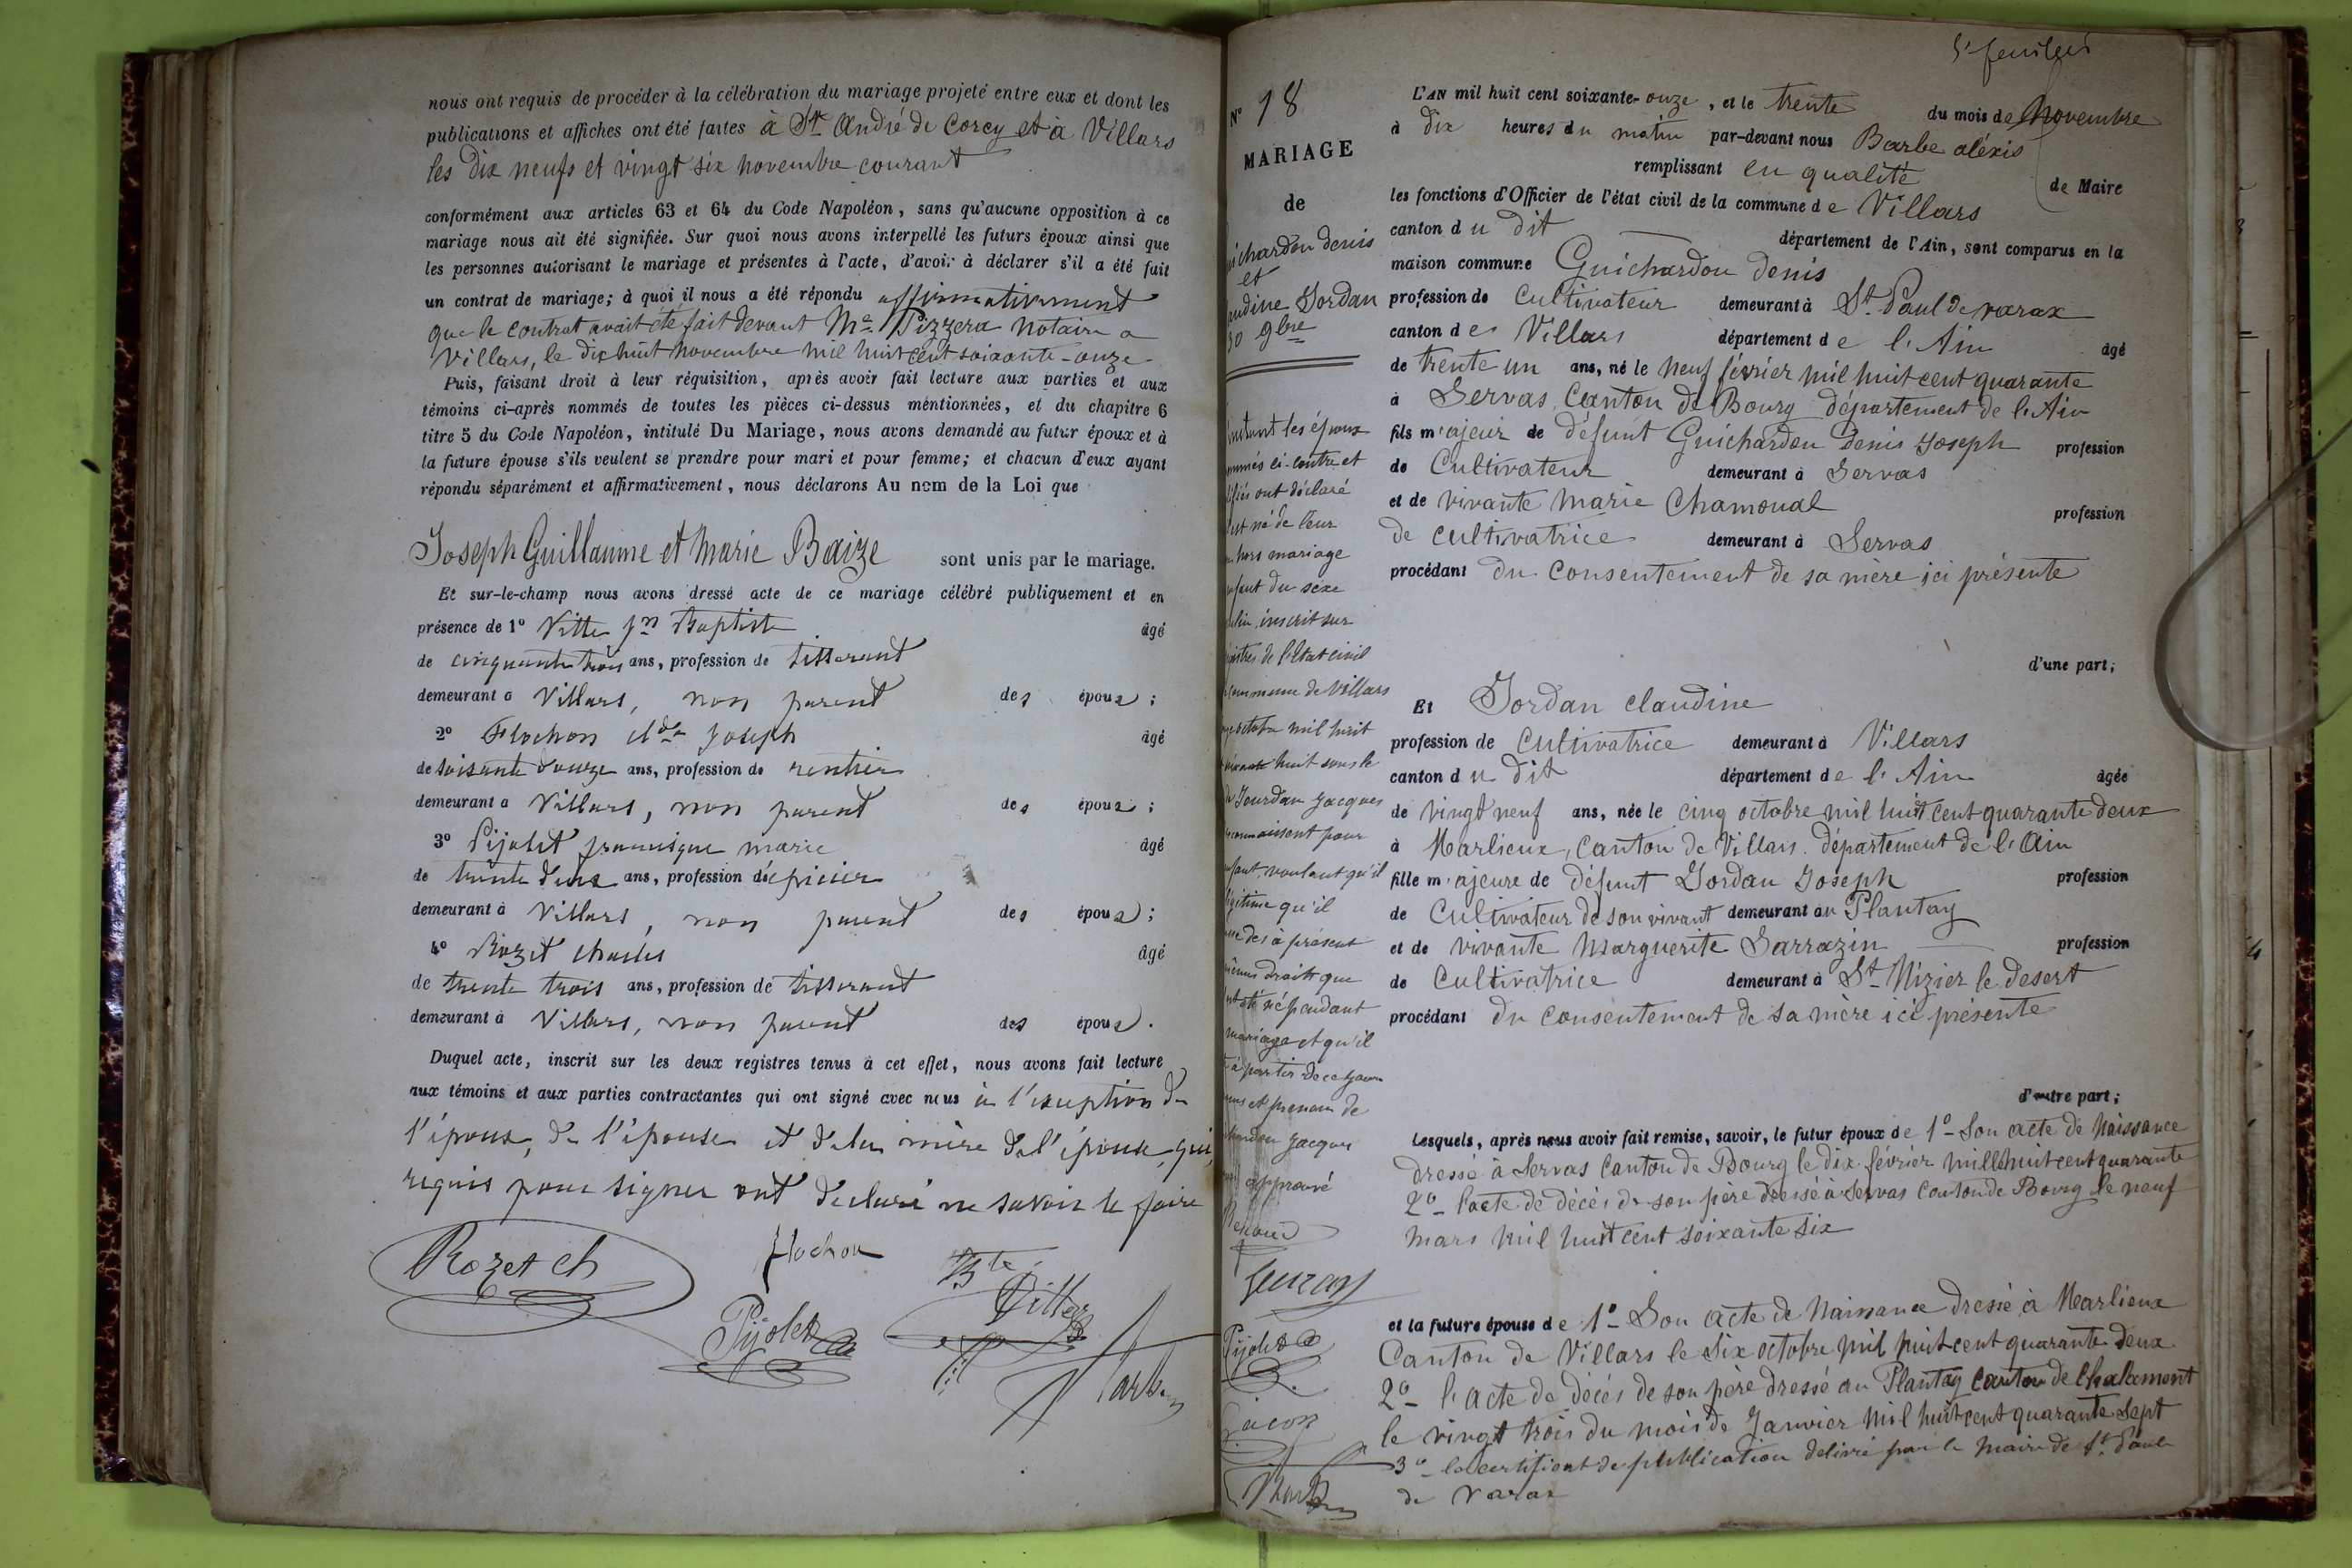 nous ont requis de procéder à la célébration du mariage projeté entre eux et dont les
publications et affiches ont été faites à St André de Corcy et à Villars
les dix neufs et vingt six novembre courant
conformément aux articles 63 et 64 du Code Napoléon, sans qu'aucune opposition à ce
mariage nous ait été signifiée. Sur quoi nous avons interpellé les futurs époux ainsi que
les personnes autorisant le mariage et présentes à l'acte, d'avoir à déclarer s'il a été fait
un contrat de mariage; à quoi il nous a été répondu affirmativement
que le contrat avait été fait devant Me Pizzera notaire a
Villars, le dix huit novembre mil huit cent soixante-onze
Puis, faisant droit à leur réquisition, après avoir fait lecture aux parties et aux
témoins ci-après nommés de toutes les pièces ci-dessus mentionnées, et du chapitre 6
titre 5 du Code Napoléon, intitulé Du Mariage, nous avons demandé au futur époux et à
la future épouse s'ils veulent se prendre pour mari et pour femme; et chacun d'eux ayant
répondu séparément et affirmativement, nous déclarons Au nom de la Loi que
Joseph Guillaume et Marie Baize sont unis par le mariage.
Et sur-le-champ nous avons dressé acte de ce mariage célébré publiquement et en
présence de 1° Vitte Jn Baptiste âgé
de cinquante trois ans, profession de tisserant
demeurant à Villars, non parent des époux;
2° Flochon Joseph âgé
de soixante douze ans, profession de rentier
demeurant à Villars, non parent des époux;
3° Pijolet francisque marie âgé
de trente deux ans, profession d'épicier
demeurant à Villars, non parent des époux;
4° Rozet Charles âgé
de trente trois ans, profession de tisserant
demeurant à Villars, non parent des époux.
Duquel acte, inscrit sur les deux registres tenus à cet effet, nous avons fait lecture
aux témoins et aux parties contractantes qui ont signé avec nous à l'exception de
l'époux, de l'épouse et de la mère de l'épouse, qui,
requis pour signer ont déclaré ne savoir le faire
Rozet Ch
flochon
Bte Vitte
Pijolet
Barbe
N° 18
MARIAGE
de
ichardon denis
et
audine Jordan
30 9bre
instant les époux
ommés ci-contre et
ifiés ont déclaré
est né de leur
hors mariage
nfant du sexe
inscrit sur
gistres de l'état civil
commune de Villars
octobre mil huit
soixante huit sous le
Jourdan Jacques
reconnaissent pour
enfant voulant qu'il
légitime qu'il
dès à présent
mêmes droits que
été né pendant
mariage et qu'il
à partir de ce jour
et prenom de
Jacques
approuvé
Pijolet
Barbe
5e feuillet
L'AN mil huit cent soixante-onze, et le trente du mois de Novembre
à dix heures du matin par-devant nous Barbe aléxis
remplissant en qualité de Maire
les fonctions d'Officier de l'état civil de la commune de Villars
canton du dit département de l'Ain, sont comparus en la
maison commune Guichardon denis
profession de Cultivateur demeurant à St Paul de varax
canton de Villars département de l'Ain âgé
de trente un ans, né le neuf février mil huit cent quarante
à Servas Canton de Bourg département de l'Ain
fils majeur de défunt Guichardon Denis Joseph profession
de Cultivateur demeurant à Servas
et de vivante Marie Chamoual profession
de cultivatrice demeurant à Servas
procédant du consentement de sa mère ici présente
d'une part;
Et Jordan Claudine
profession de Cultivatrice demeurant à Villars
canton du dit département de l'Ain âgée
de vingt neuf ans, née le cinq octobre mil huit cent quarante deux
à Marlieux, Canton de Villars département de l'Ain
fille majeure de défunt Jordan Joseph profession
de Cultivateur de son vivant demeurant au Plantay
et de vivante Marguerite Sarrazin profession
de Cultivatrice demeurant à St Nizier le desert
procédant du consentement de sa mère ici présente
d'autre part;
Lesquels, après nous avoir fait remise, savoir, le futur époux de 1° Son acte de Naissance
dressé à Servas Canton de Bourg le dix février mil huit cent quarante
2° l'acte de décès de son père dressé à Servas canton de Bourg le neuf
mars mil huit cent soixante six
et la future épouse de 1° Son acte de Naissance dressé à Marlieux
Canton de Villars le six octobre mil huit cent quarante deux
2° l'acte de décès de son père dressé au Plantay canton de Chalamont
le vingt trois du mois de Janvier mil huit cent quarante sept
3° le certificat de publication délivré par le Maire de St Paul
de Varax